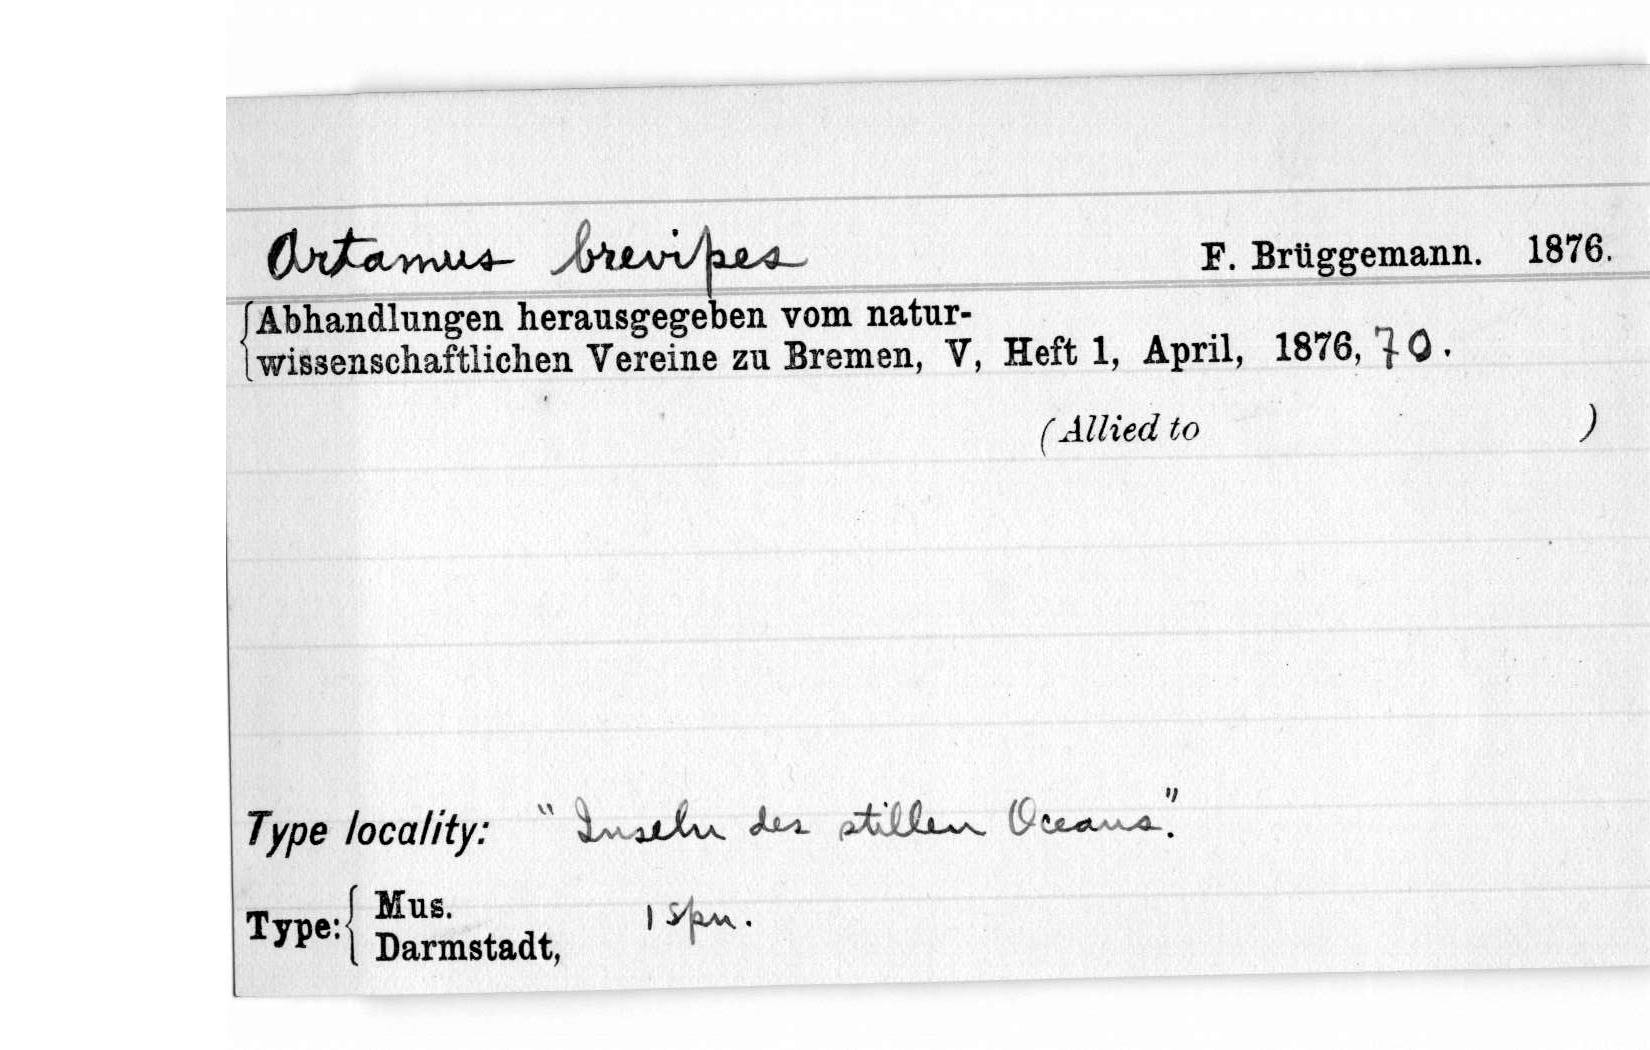 Artamus brevipes F. Brüggemann. 1876.
Abhandlungen herausgegeben vom natur-
wissenschaftlichen Vereine zu Bremen, V, Heft 1, April, 1876, 70.
(Allied to )
Type locality: "Inseln des stillen Oceans."
Type: Mus.
Darmstadt, 1 spn.